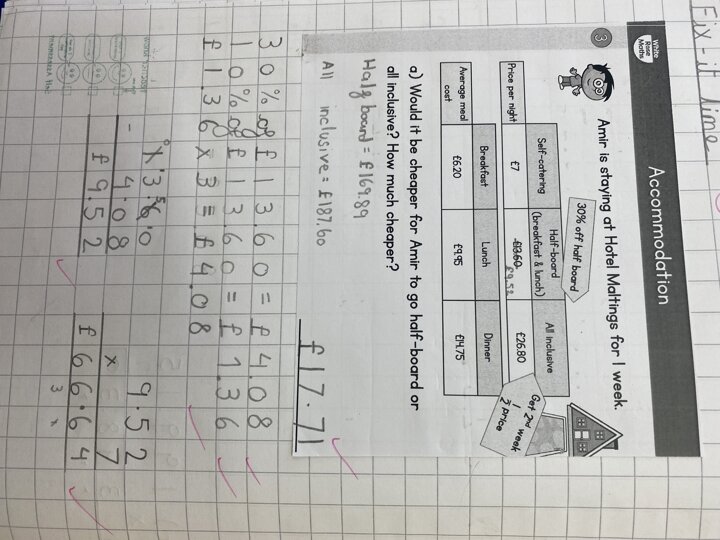 Fix-it Time
White
Rose
Maths
Accommodation
3
Amir is staying at Hotel Maltings for 1 week.
30% off half board
Self-catering
Half-board
(breakfast & lunch)
All inclusive
Price per night
£7
£13.60 £9.52
£26.80
Get 2nd week
1/2 price
Breakfast
Lunch
Dinner
Average meal
cost
£6.20
£9.95
£14.75
a) Would it be cheaper for Amir to go half-board or
all inclusive? How much cheaper?
Half board = £169.89
All inclusive = £187.60
£17.71
30% of £13.60 = £4.08
10% of £13.60 = £1.36
£1.36 x 3 = £4.08
13.60
- 4.08
£9.52
9.52
x 7
£66.64
3